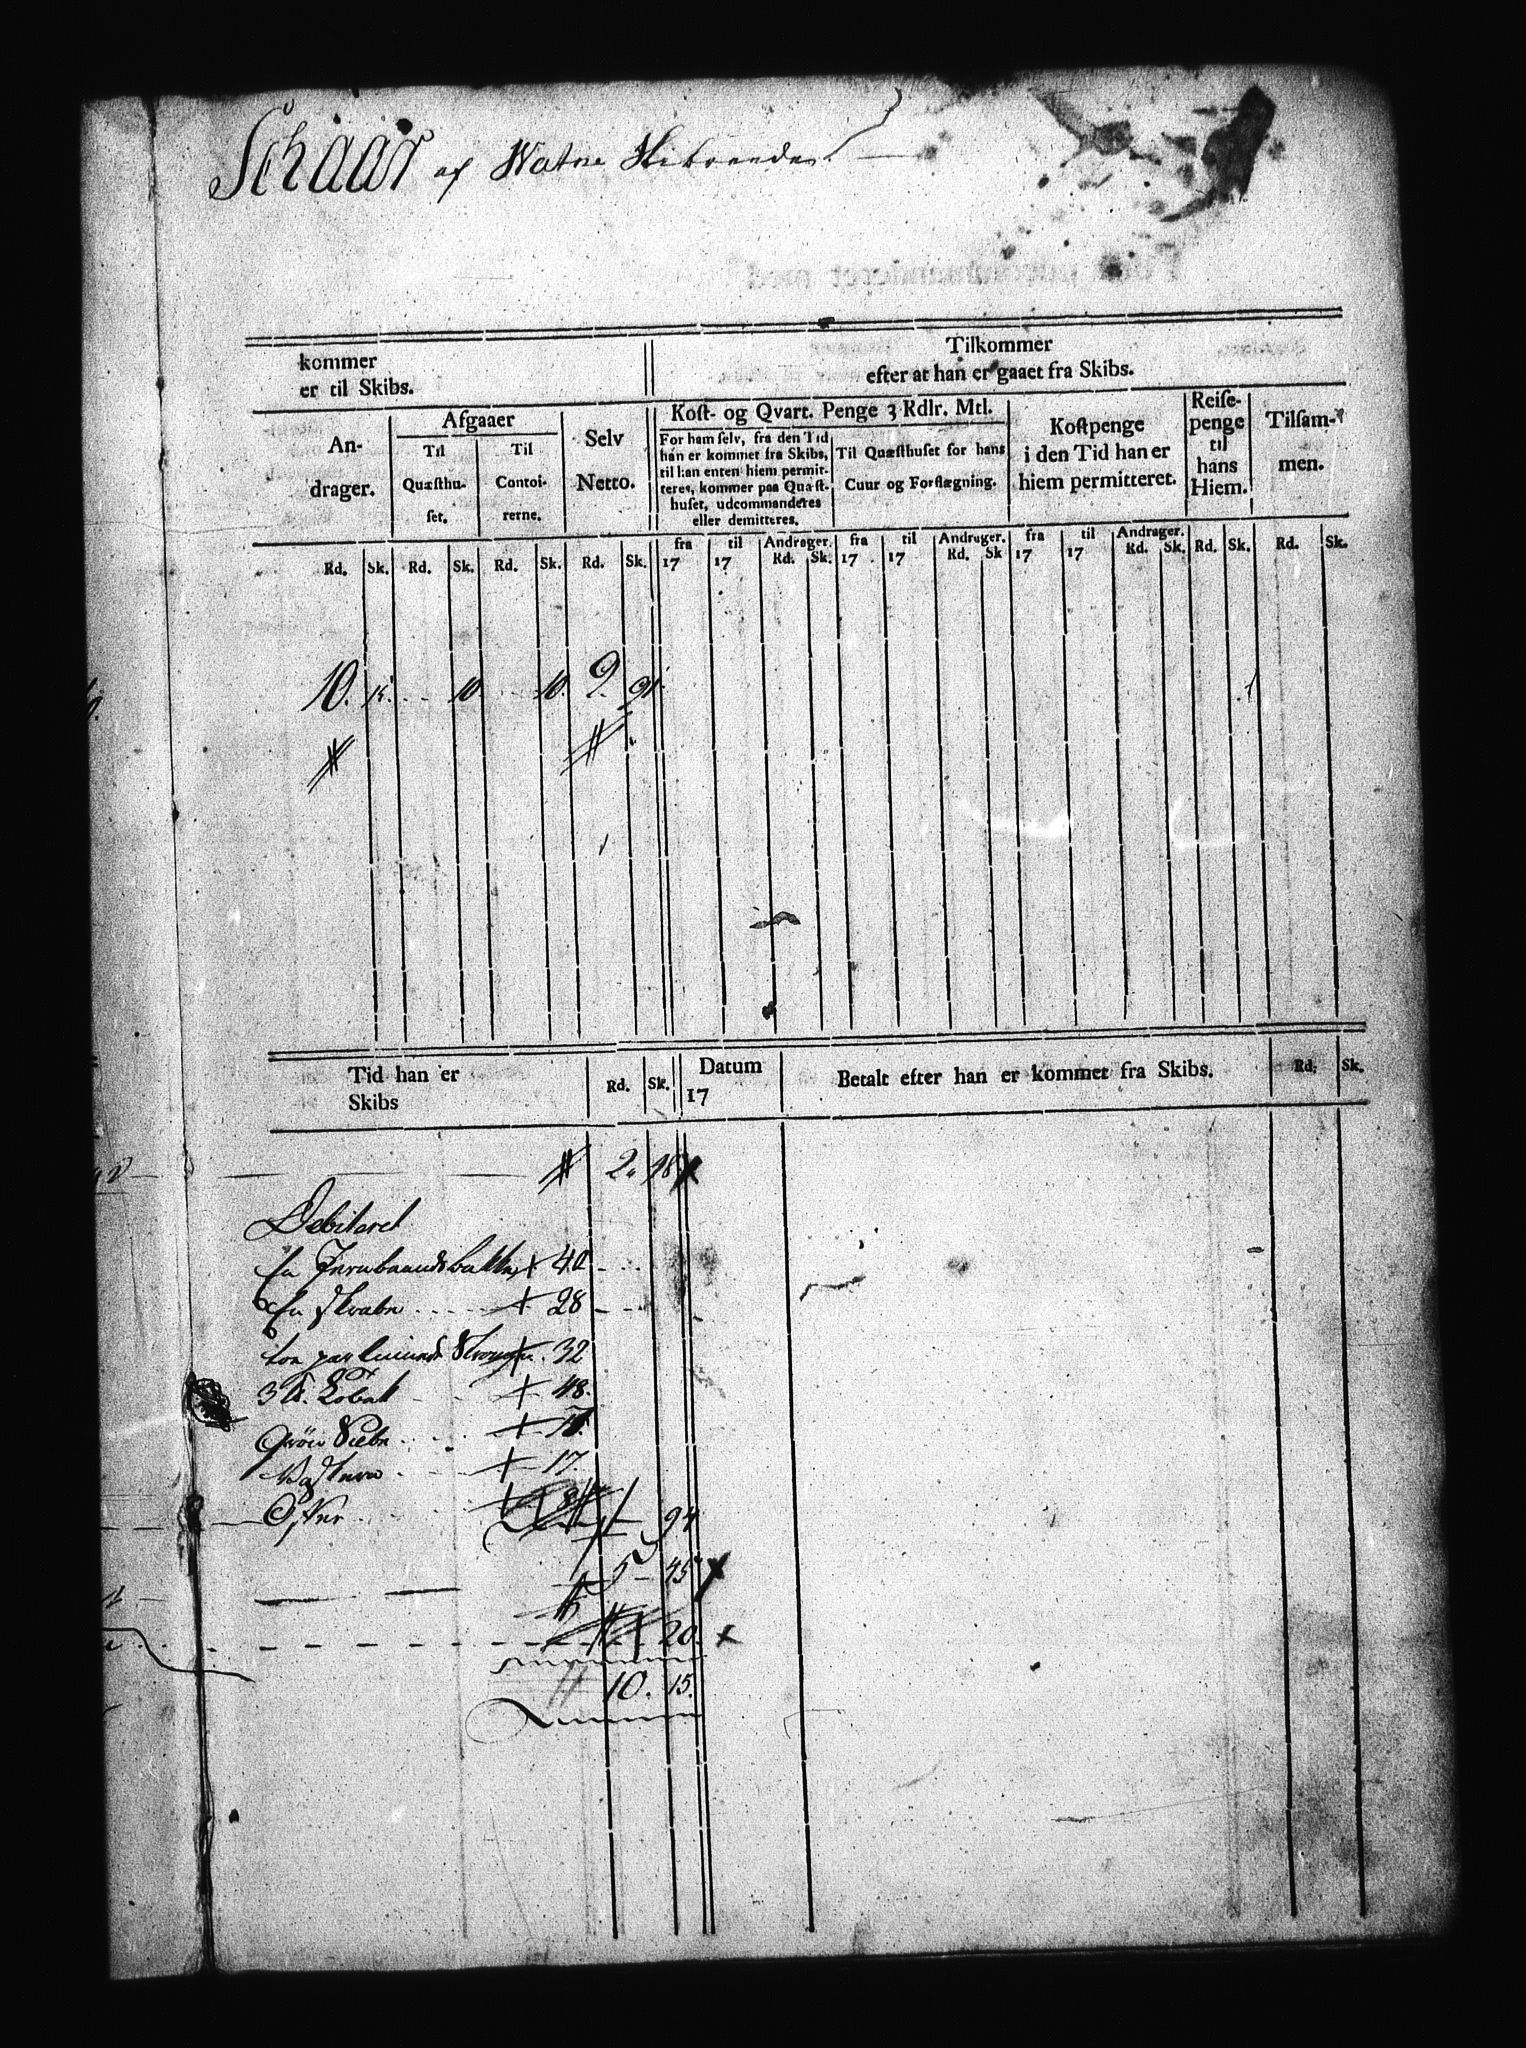 Schaar af Watne Skibreede
kommer
er til Skibs.
Tilkommer
efter at han er gaaet fra Skibs.
An-
drager.
Afgaaer
Til
Quæsthu-
set.
Til
Contoi-
rerne.
Selv
Netto.
Kost- og Qvart. Penge 3 Rdlr. Mtl.
For ham selv, fra den Tid
han er kommet fra Skibs,
til han enten hiem permit-
teres, kommer paa Quæst-
huset, udcommanderes
eller demitteres.
Til Quæsthuset for hans
Cuur og Forflægning.
Kostpenge
i den Tid han er
hiem permitteret.
Reise-
penge
til
hans
Hiem.
Tilsam-
men.
Rd. Sk. Rd. Sk. Rd. Sk. Rd. Sk.
fra 17 til 17 Andrager. Rd. Sk.
fra 17 til 17 Andrager. Rd. Sk
fra 17 til 17 Andrager. Rd. Sk.
Rd. Sk. Rd. Sk.
10. 15. 10 10. 9. 91
Tid han er
Skibs
Rd. Sk.
Datum
17
Betalt efter han er kommet fra Skibs.
Rd. Sk.
2. 18
Debiteret
en 40
en Skrabe 28
toe par 32
3 Tobak 48.
Grön Sæbe
17.
94
5 45
20.
10. 15.